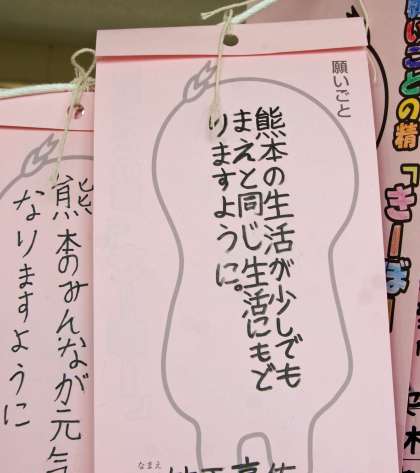 願いごと
熊本の生活が少しでも
まえと同じ生活にもど
りますように。
なまえ
熊本のみんなが元気
なりますように
願いごとの精
「きーぼ」